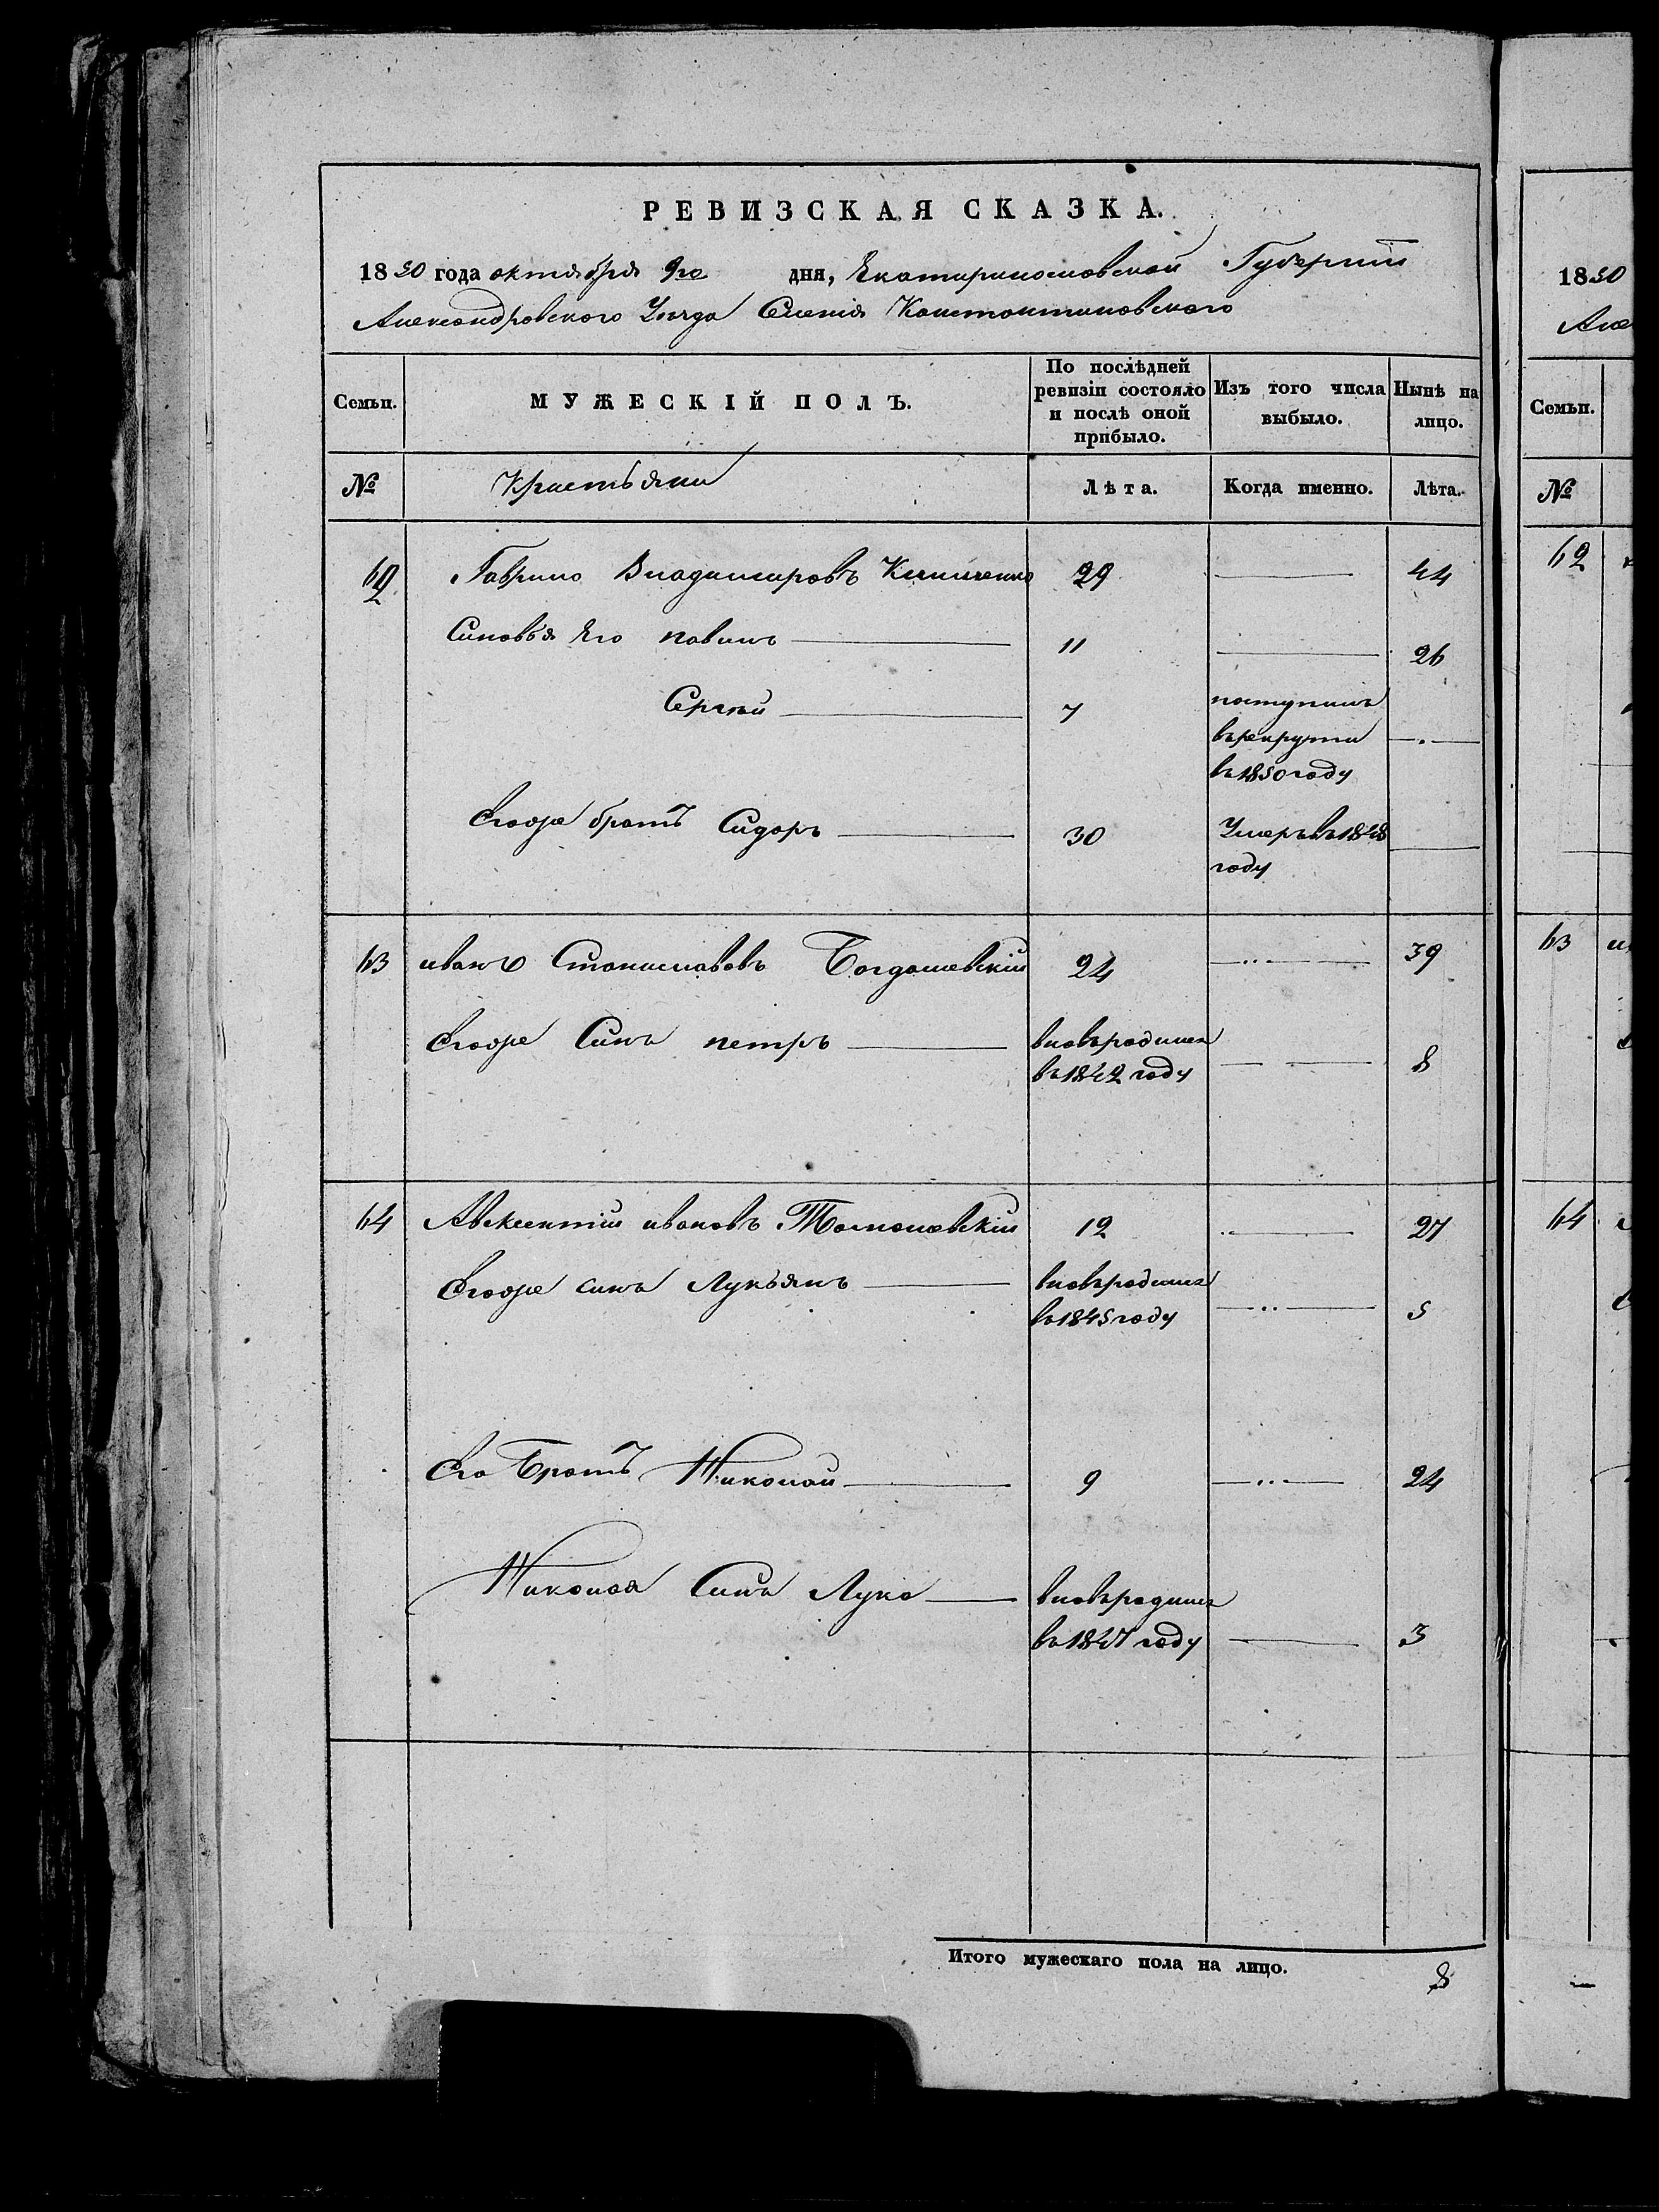 РЕВИЗСКАЯ СКАЗКА.
1850 года октября 9го дня, Екатериносновской Губернии
Александровского Уезда Селения Константиновского
Семьи.
МУЖЕСКІЙ ПОЛЪ.
По послѣдней
ревизіи состояло
и послѣ оной
прибыло.
Изъ того числа
выбыло.
Нынѣ на
лицо.
№
Крестьяни
Лѣта.
Когда именно.
Лѣта.
62 Гаврило Владимировъ 29 44
Синовья Его павилъ 11 26
Сергѣй 7 поступилъ
въ рекрути
въ 1850 году
Егоже братъ Сидоръ 30 Умеръ въ 1848
году
63 иванъ Станиславовъ Богдашевскій 24 39
Егоже Синъ петръ вновьродился
въ 1842 году 8
64 Авксентій ивановъ Томошевскій 12 27
Егоже синъ Лукъянъ вновьродился
въ 1845 году 5
Его Братъ Николай 9 24
Николая Синъ Лука вновьродился
въ 1847 году 3
Итого мужескаго пола на лицо. 8
1850
Але
Семьи.
№
62
63 и
64